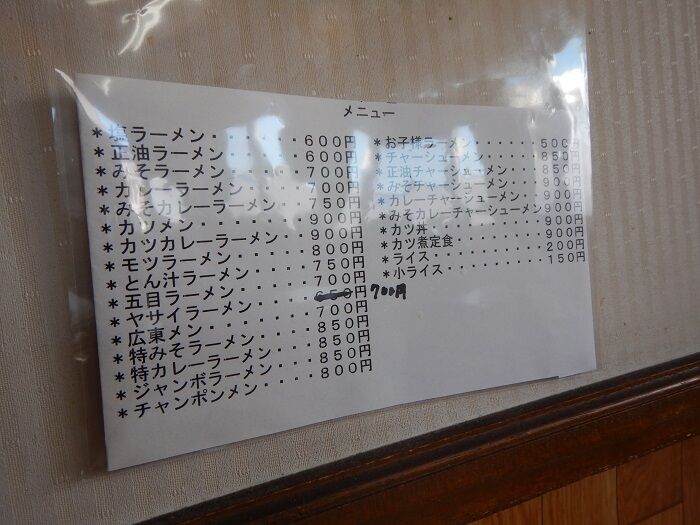 メニュー
*塩ラーメン・・・・・・・600円
*正油ラーメン・・・・・・600円
*みそラーメン・・・・・・700円
*カレーラーメン・・・・・700円
*みそカレーラーメン・・・750円
*カツメン・・・・・・・・900円
*カツカレーラーメン・・・900円
*モツラーメン・・・・・・800円
*とん汁ラーメン・・・・・750円
*五目ラーメン・・・・・・700円
*ヤサイラーメン・・・・・650円 700円
*広東メン・・・・・・・・700円
*特みそラーメン・・・・・850円
*特カレーラーメン・・・・850円
*ジャンボラーメン・・・・850円
*チャンポンメン・・・・・800円
*お子様ラーメン・・・・・500円
*チャーシューメン・・・・850円
*正油チャーシューメン・・850円
*みそチャーシューメン・・900円
*カレーチャーシューメン・900円
*みそカレーチャーシューメン900円
*カツ丼・・・・・・・・・900円
*カツ煮定食・・・・・・・900円
*ライス・・・・・・・・・200円
*小ライス・・・・・・・・150円